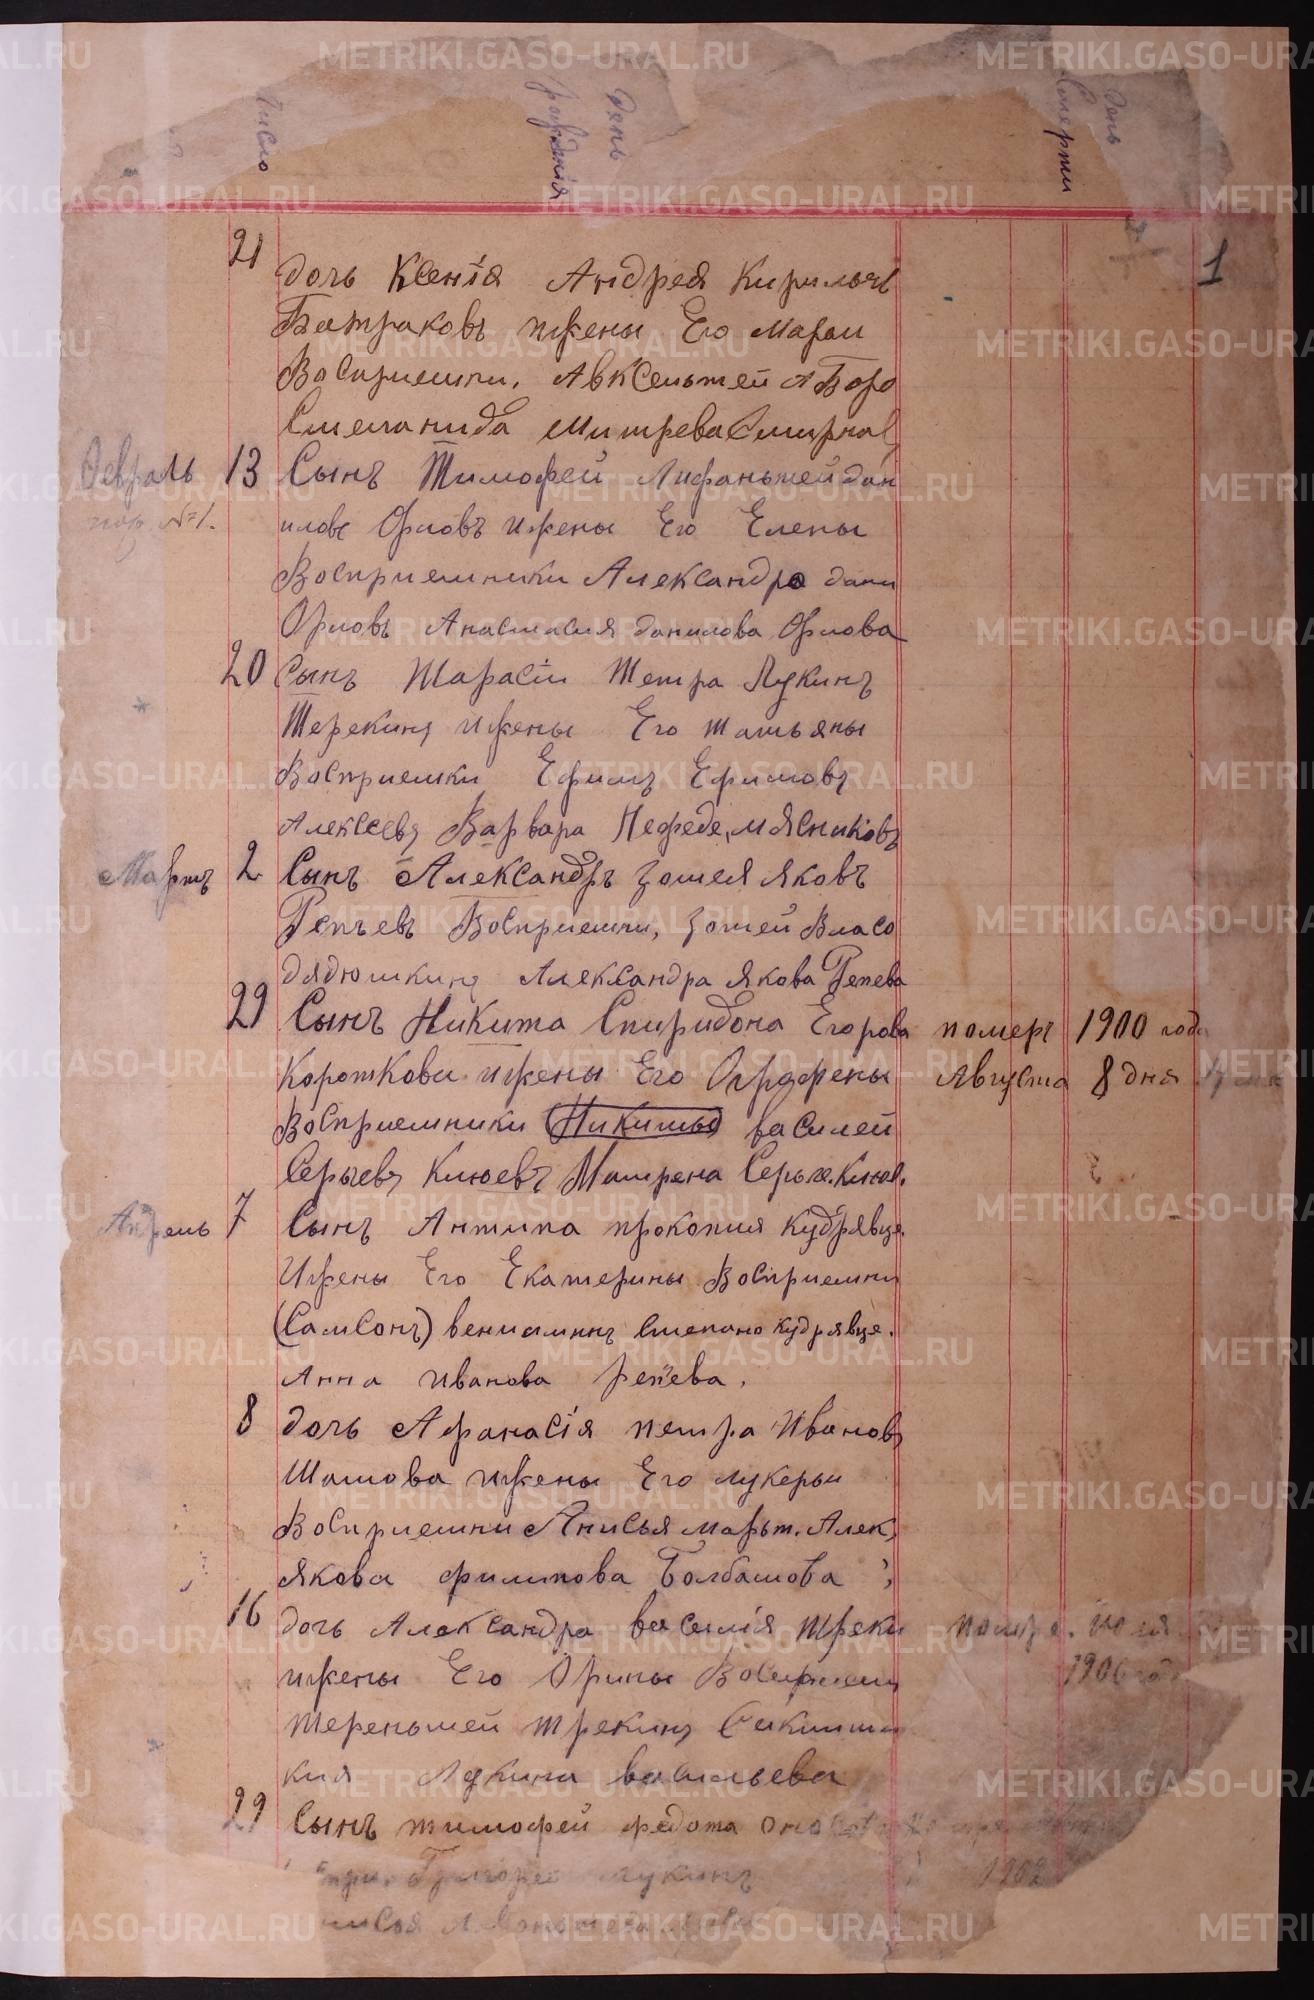 число
день рожденія
день Смерти
1
21
дочь Ксенія Андрея Кирильяв
Батраковъ ижены Его Марьи
Восприемни, Авксентей
Степанида Митрева Смирнав
Февраль 13 Сынъ Тимофей Лифантей дан
пов №1. илове Орловъ ижены Его Елены
Восприемники Александра дани
Орловъ Анастасия данилова Орлова
20 Сынъ Тарасіи Петра Лукинъ
Терекинъ ижены Его татьяны
Восприемки Ефимъ Ефимовъ
Алексеевъ Варвара Нефеде, мясниковъ
Мартъ 2 Сынъ Александръ Зотея яковъ
Репъевъ Восприемни, Зотей Власо
дядюшкинъ Александра якова Репева
29 Сынъ Никита Спиридона Егорова померъ 1900 года
Короткова ижены Его Ографены Августа 8 дня
Восприемники Никиты василей
Серьгевъ Клюевъ Матрена Серьге. Клюев.
Апрель 7 Сынъ Антипа прокопия Кудрявце.
Ижены Его Екатерины Восприемни
(Самсонъ) вениаминъ Степано кудрявце.
Анна иванова репева.
8 дочь Афанасія петра Ивановъ
Шатова ижены Его лукерьи
Восприемни Анисья март. Алек,
якова филипова Болбашова
16 дочь Александра василія треки июля
ижены Его Орины Восприем 1906 год
терентей трекинъ Секлити
кия Лукина васильева
29 Сынъ тимофей федота
Григорей лукинъ 1902